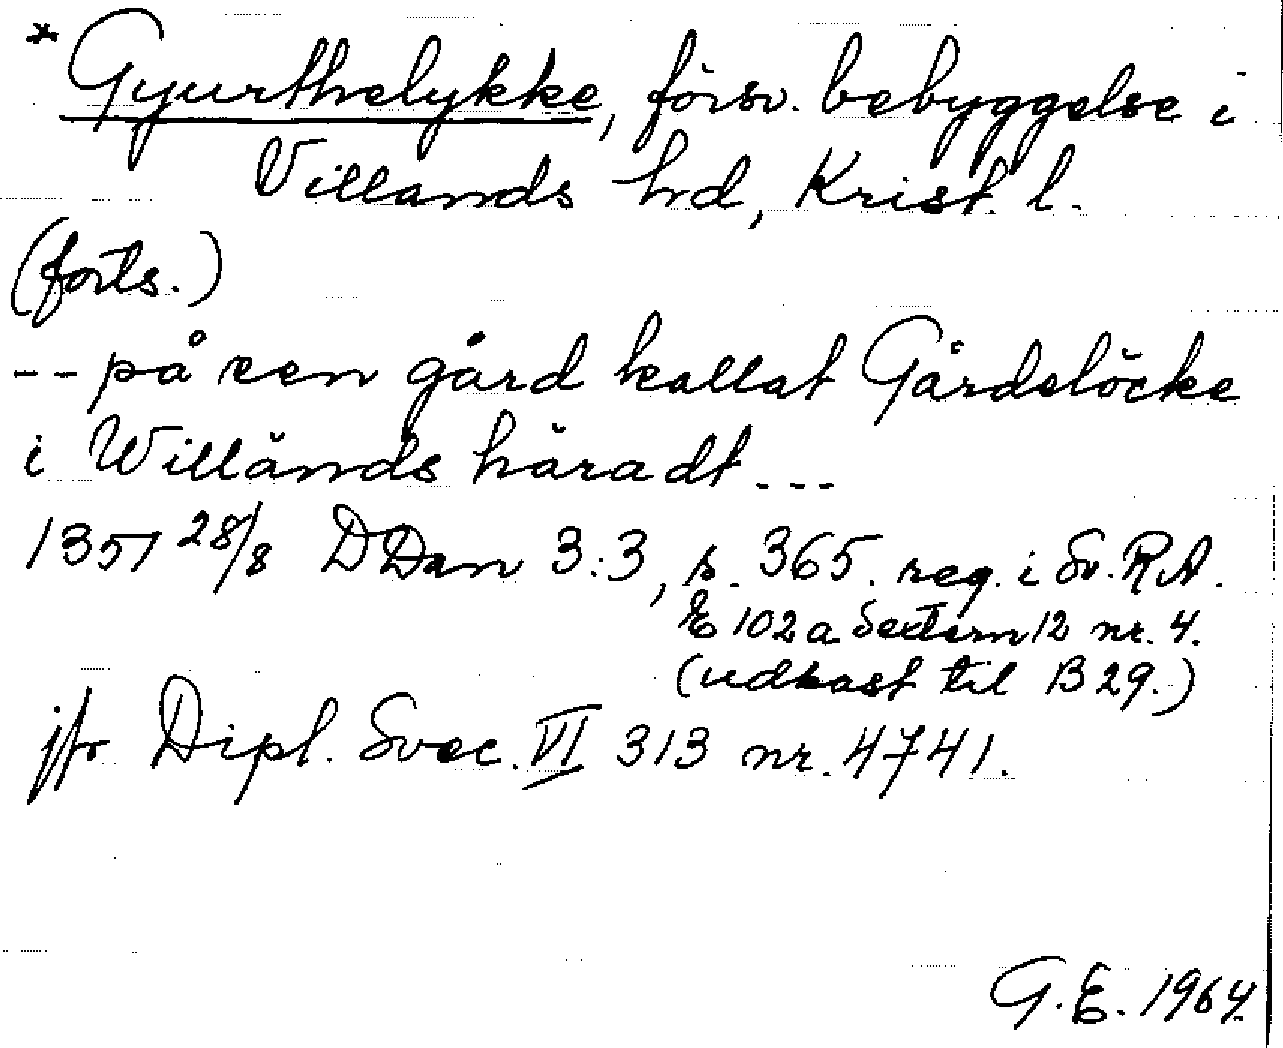 * Gyurthelykke, försv. bebyggelse i
Villands hd, Krist. l.
(forts.)
-- på een gård kallat Gårdelöcke
i Willånds häradt ---
1351 28/8 DDan 3:3, s. 365. reg. i Sv. RA.
E 102 a Sextern 12 nr. 4.
(udkast til B 29.)
jfr Dipl. Svec. VI 313 nr. 4741.
G.E. 1964